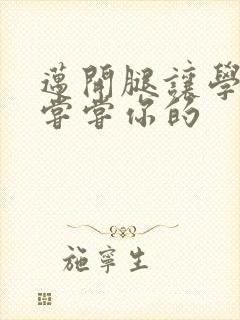 邁開腿讓學
嘗嘗你的
施寧生